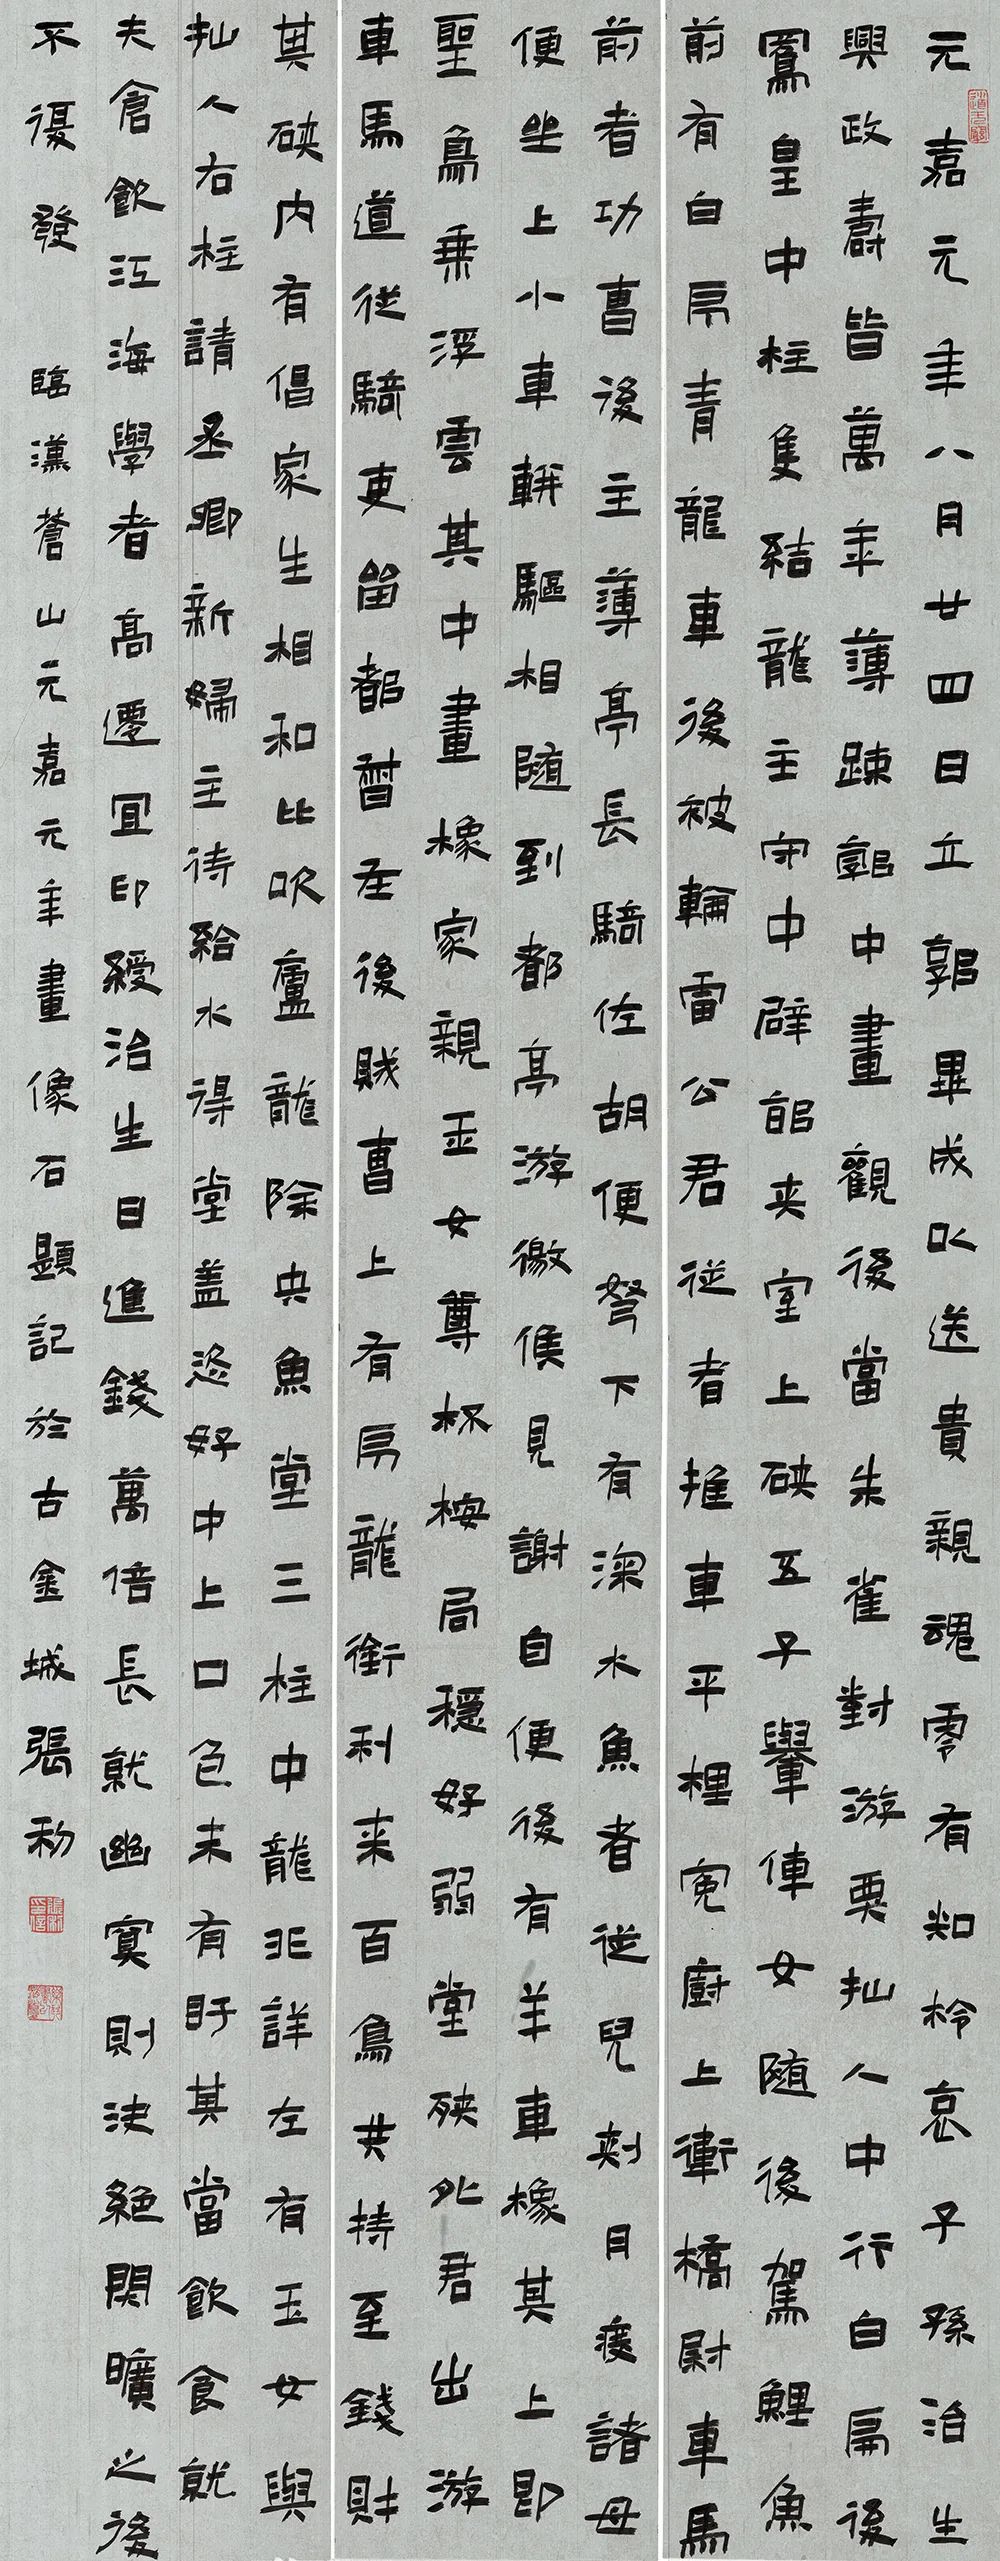 元嘉元年八月廿四日立郭畢成以送貴親魂零有知柃哀子孫治生
興政壽皆萬年薄踈郭中畫觀後當朱雀對游㮚拙人中行白扁後
鳳皇中柱隻結龍主守中𨐨䣈夹室上硤五子轝使女随後駕鯉魚
前有白乕青龍車後被輪雷公君従者推車平梩冤厨上衛橋尉車馬
前者功曹後主薄亭長騎佐胡便弩下有深水魚者従兒刾月度諸母
便坐上小車軿驅相随到都亭游徼候見謝自便後有羊車橡其上即
聖鳥乗浮雲其中畫橡家親玉女尊杯桉局穏好弱堂硤外君出游
車馬道従騎吏留都督在後賊曹上有乕龍銜利来百鳥共持至錢財
其硤内有倡家生相和比吹廬龍除央魚堂三柱中龍非詳左有玉女與
拙人右柱請丞卿新婦主待給水㝵堂盖恣好中上口色未有盱其當飲食就
夫倉飲江海學者高遷宜印綬治生日進錢萬倍長就幽寞則决絕閇曠之後
不復發　臨漢蒼山元嘉元年畫像石題記於古金城張利